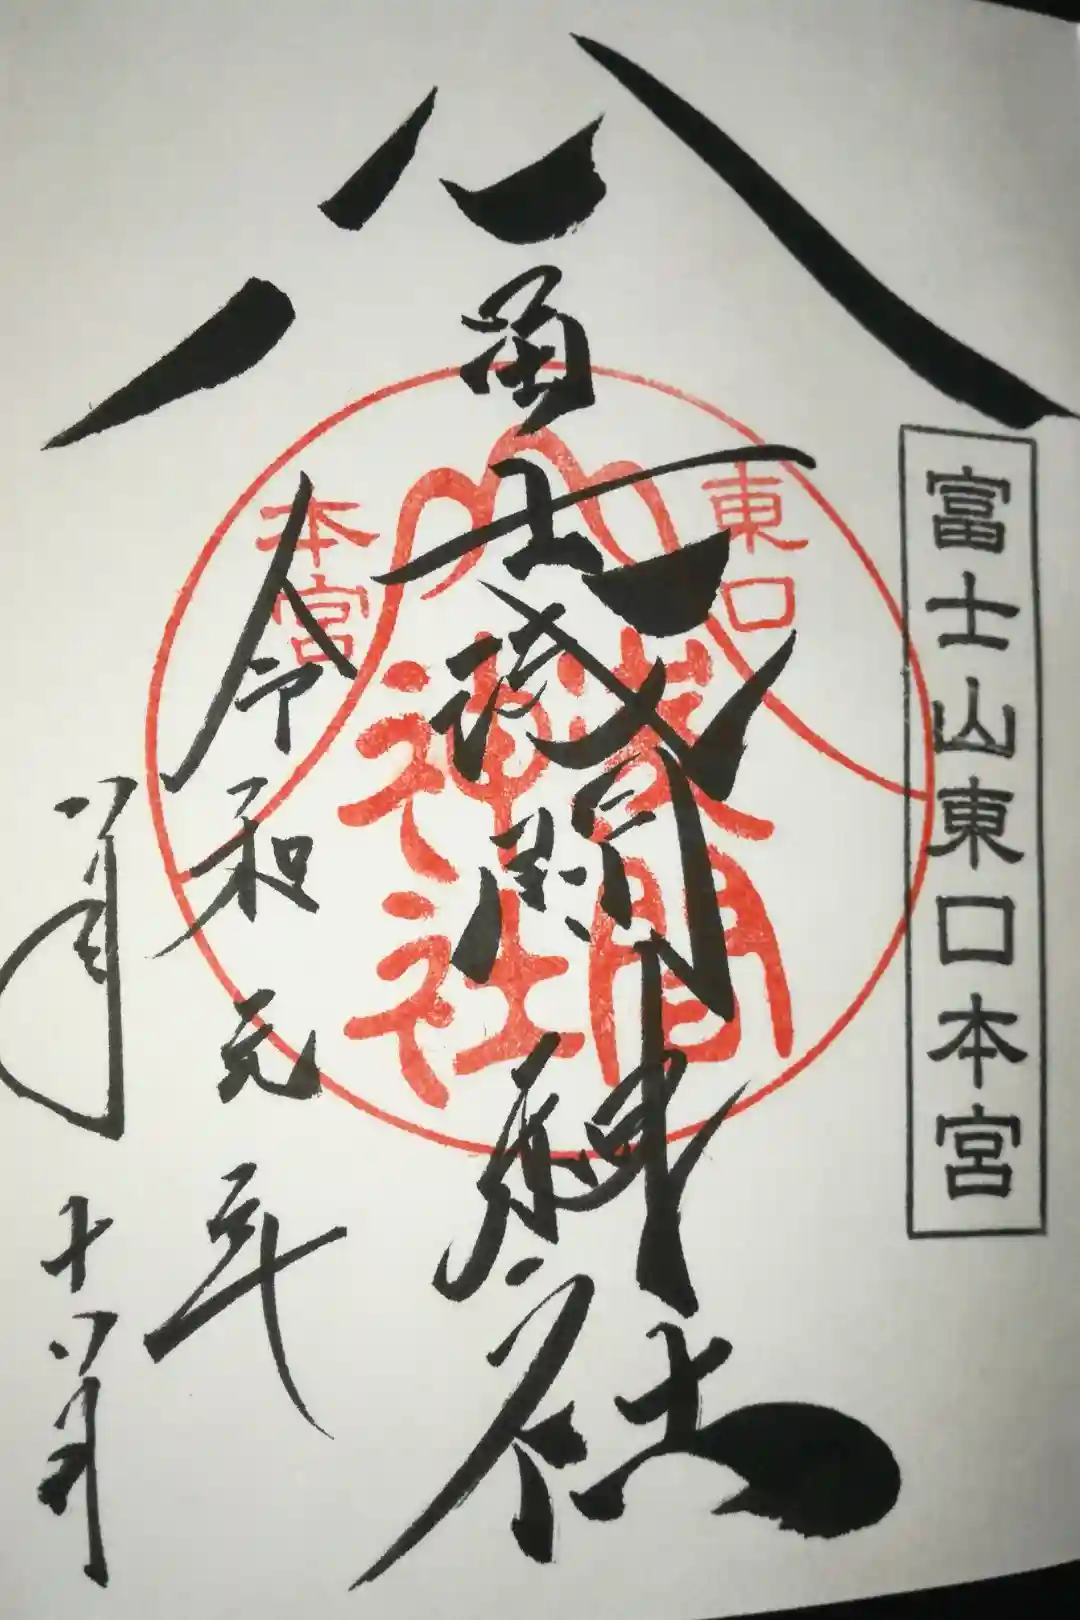 富士山東口本宮
冨士浅間神社
東口
本宮
浅間
神社
令和元年
八月十八日